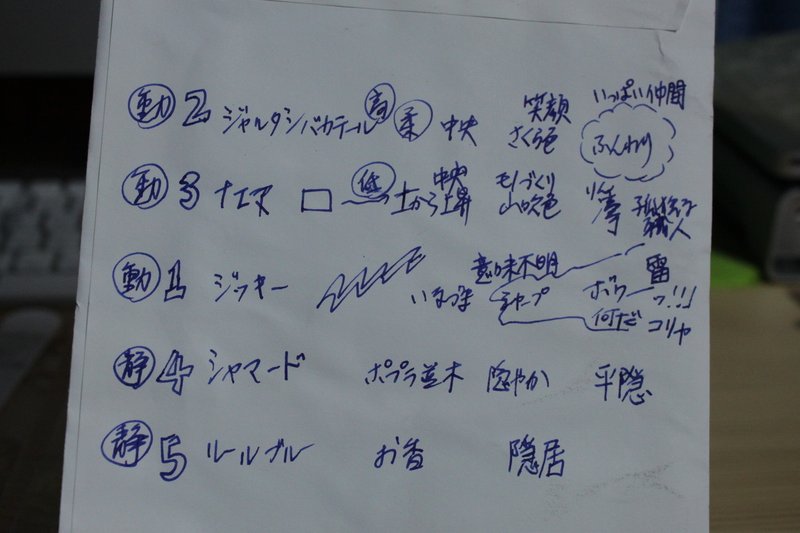 いっぱい仲間
動 2 ジャルダンバガテール 高 柔 中央 笑顔 さくら色 ふんわり
動 3 ナエマ □ 低 土から上昇 中央 モノづくり 山吹色 孤独な職人
動 1 ジッキー いなづま 意味不明 シャープ 雷 ボワーッ!!! 何だコリャ
静 4 シャマード ポプラ並木 穏やか 平穏
静 5 ルールブルー お香 隠居